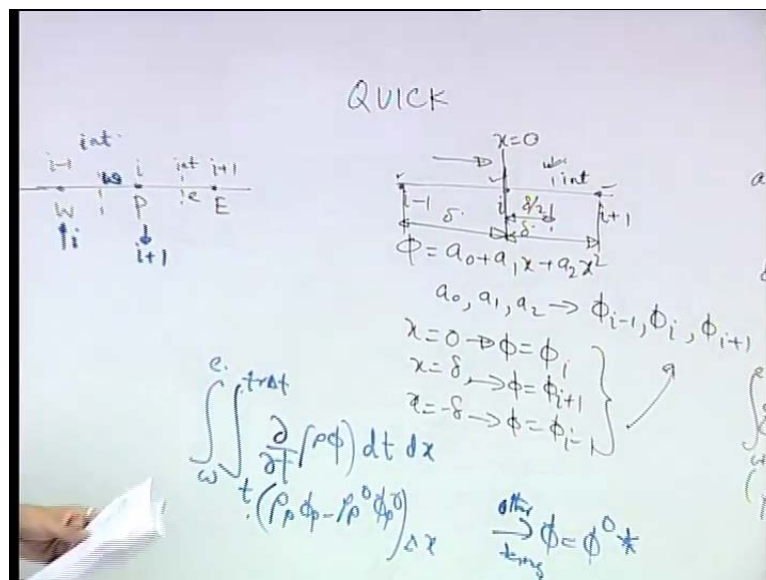 QUICK
int
i-1 i int i+1
w e
W P E
i i+1
x=0
int
i-1 i δ/2 i+1
δ δ
ϕ=a₀+a₁x+a₂x²
a₀,a₁,a₂→ϕᵢ₋₁,ϕᵢ,ϕᵢ₊₁
x=0→ϕ=ϕᵢ
x=δ,→ϕ=ϕᵢ₊₁
x=-δ→ϕ=ϕᵢ₋₁
e t+Δt
∫∫ ∂/∂t(ρϕ)dt dx
w t
(ρₚϕₚ-ρₚ⁰ϕₚ⁰)Δx
other
→ϕ=ϕ⁰*
terms